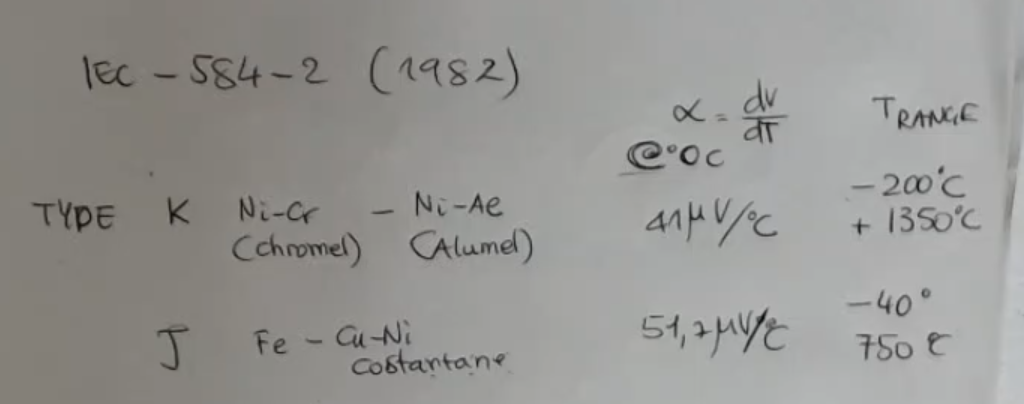 IEC - 584-2 (1982)
α = dV/dT TRANGE
@°0C
TYPE K Ni-Cr - Ni-Ae 41μV/°C -200°C
(chromel) (Alumel) + 1350°C
J Fe - Cu-Ni 51,7μV/°C -40°
Costantane 750 °C